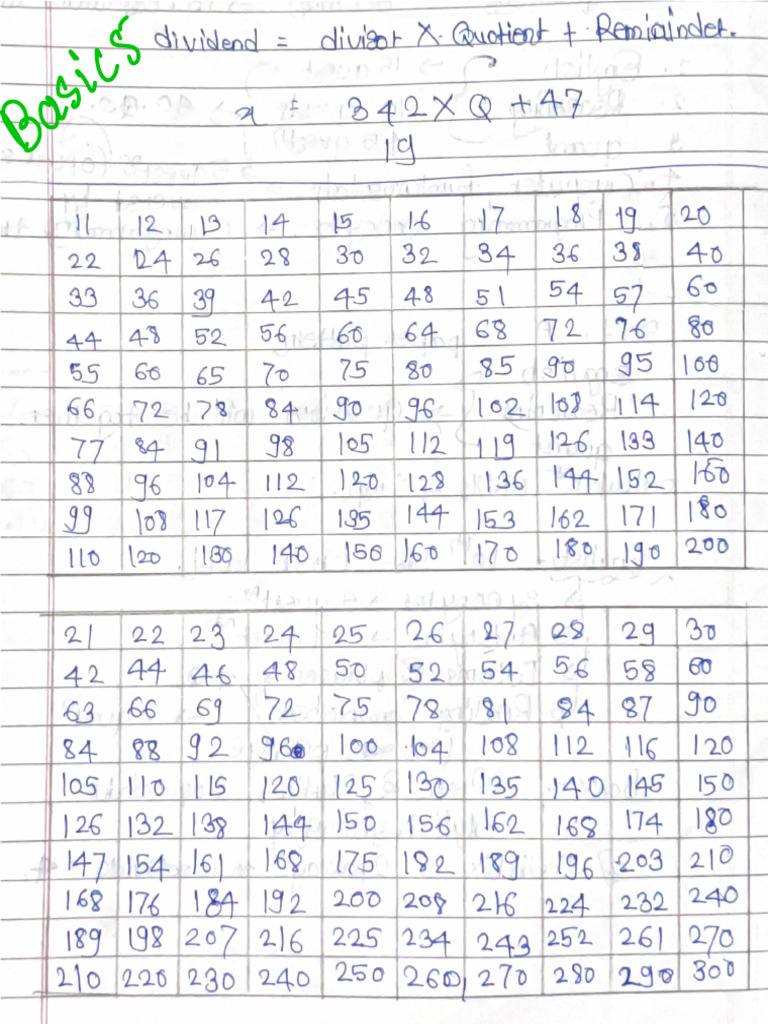 Basics
dividend = divisor X Quotient + Remiainder.
x = 342 X Q + 47
19
11 12 13 14 15 16 17 18 19 20
22 24 26 28 30 32 34 36 38 40
33 36 39 42 45 48 51 54 57 60
44 48 52 56 60 64 68 72 76 80
55 60 65 70 75 80 85 90 95 100
66 72 78 84 90 96 102 108 114 120
77 84 91 98 105 112 119 126 133 140
88 96 104 112 120 128 136 144 152 160
99 108 117 126 135 144 153 162 171 180
110 120 130 140 150 160 170 180 190 200
21 22 23 24 25 26 27 28 29 30
42 44 46 48 50 52 54 56 58 60
63 66 69 72 75 78 81 84 87 90
84 88 92 96 100 104 108 112 116 120
105 110 115 120 125 130 135 140 145 150
126 132 138 144 150 156 162 168 174 180
147 154 161 168 175 182 189 196 203 210
168 176 184 192 200 208 216 224 232 240
189 198 207 216 225 234 243 252 261 270
210 220 230 240 250 260 270 280 290 300